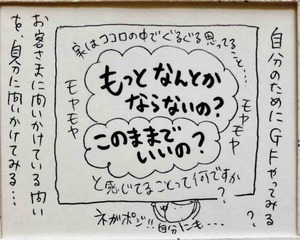 自分のためにGFやってみる
実はココロの中でぐるぐる思ってること…
もっとなんとか
ならないの?
このままで
いいの?
モヤモヤ
モヤモヤ
と感じてることって何ですか?
?
ネガポジ!!自分にも…
お客さまに問いかけている問い
を、自分に問いかけてみる…